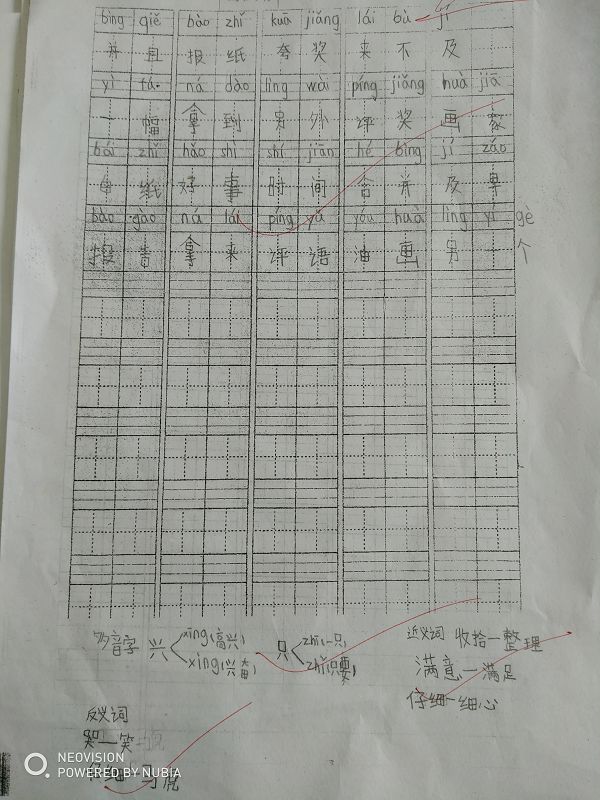 bìng qiě bào zhǐ kuā jiǎng lái bù jí
并且报纸夸奖来不及
yì fú ná dào lìng wài píng jiǎng huà jiā
一幅拿到另外评奖画家
bái zhǐ hǎo shì shí jiān hé bìng jí záo
白纸好事时间合并及
bào gào ná lái píng yǔ yóu huà lìng yí gè
报告拿来评语油画另一个
多音字 兴 xìng(高兴) 只 zhī(一只)
xìng(兴奋) zhǐ(只要)
近义词 收拾一整理
满意一满足
仔细一细心
反义词
哭一笑
仔细
NEOVISION
POWERED BY NUBIA